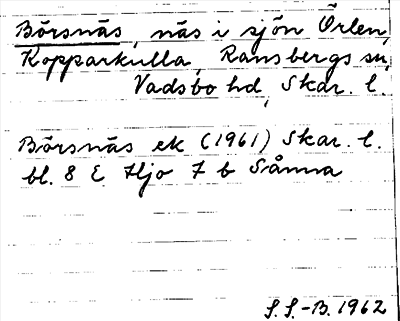 Börsnäs, näs i sjön Örlen,
Kopparkulla, Ransbergs sn,
Vadsbo hd, Skar. l.
Börsnäs ek (1961) Skar. l.
bl. 8 E Hjo 7 b Sånna
S.S.-B. 1962